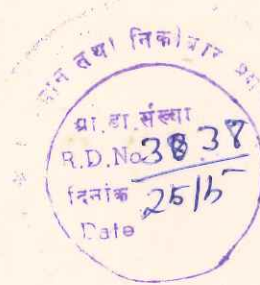 तथा निकोबार
प्रा. डा. संख्या
R.D.No 3838
दिनांक 25/5
Date